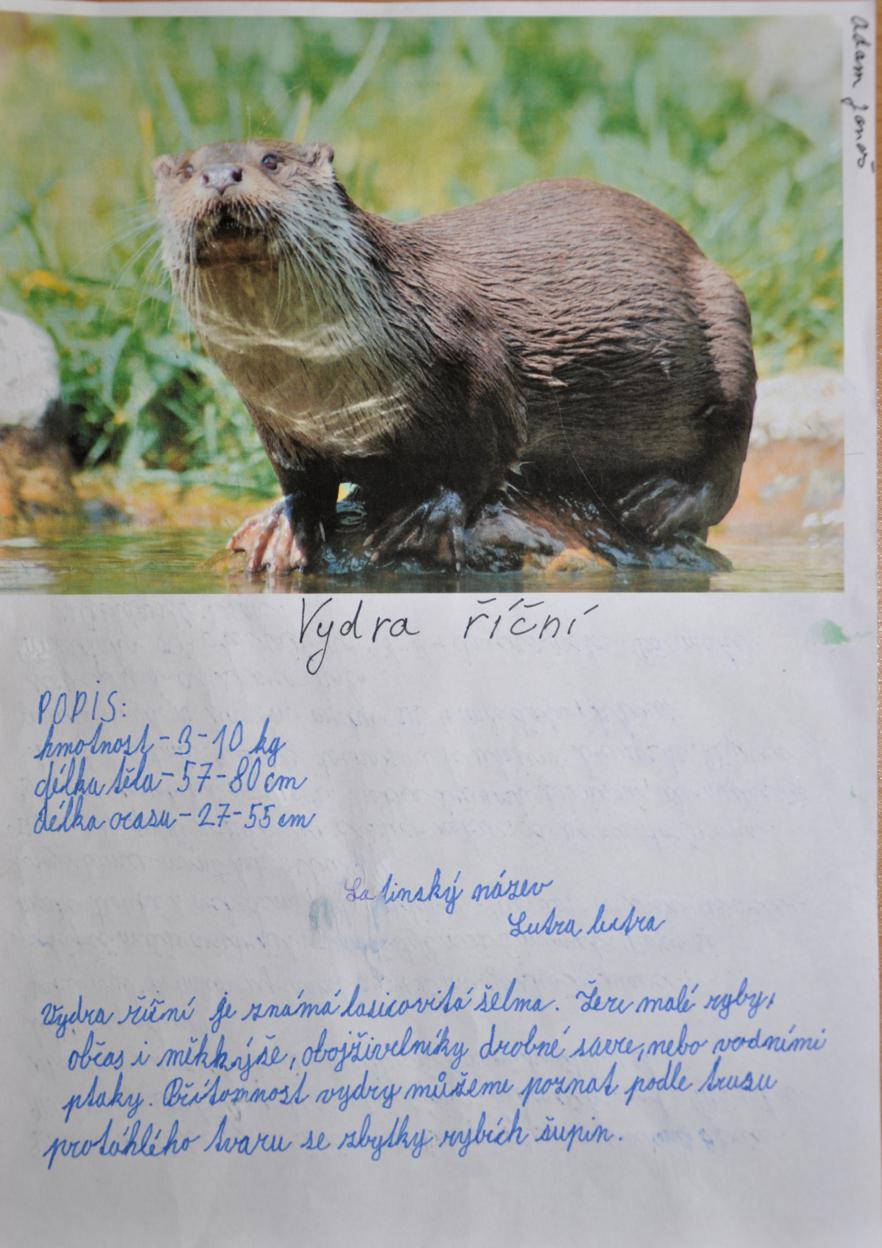 Adam Jonáš
Vydra říční
POPIS:
hmotnost - 3 - 10 kg
délka těla - 57 - 80 cm
délka ocasu - 27 - 55 cm
Latinský název
Lutra lutra
Vydra říční je známá lasicovitá šelma. Žere malé ryby,
občas i měkkýše, obojživelníky drobné savce, nebo vodními
ptaky. Přítomnost vydry můžeme poznat podle trusu
protáhlého tvaru se zbytky rybích šupin.